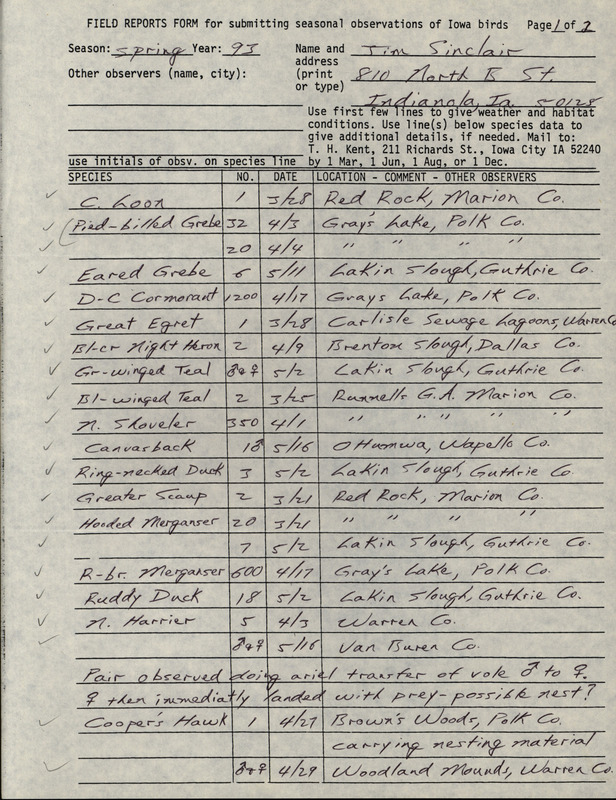 FIELD REPORTS FORM for submitting seasonal observations of Iowa birds Page 1 of 2
Season: Spring Year: 93 Name and Tim Sinclair
address
Other observers (name, city): (print 810 North B St.
or type)
Indianola, Ia. 50125
Use first few lines to give weather and habitat
conditions. Use line(s) below species data to
give additional details, if needed. Mail to:
T. H. Kent, 211 Richards St., Iowa City IA 52240
use initials of obsv. on species line by 1 Mar, 1 Jun, 1 Aug, or 1 Dec.
SPECIES NO. DATE LOCATION - COMMENT - OTHER OBSERVERS
✓ C. Loon 1 3/28 Red Rock, Marion Co.
✓ Pied-billed Grebe 32 4/3 Gray's Lake, Polk Co.
✓ 20 4/4 " " " "
✓ Eared Grebe 6 5/11 Lakin Slough, Guthrie Co.
✓ D-C Cormorant 1200 4/17 Grays Lake, Polk Co.
✓ Great Egret 1 3/28 Carlisle Sewage Lagoons, Warren Co
✓ Bl-cr Night Heron 2 4/9 Brenton Slough, Dallas Co.
✓ Gr-winged Teal ♂&♀ 5/2 Lakin Slough, Guthrie Co.
✓ Bl-winged Teal 2 3/25 Runnells G.A. Marion Co.
✓ N. Shoveler 350 4/1 " " " " "
✓ Canvasback 1♂ 5/16 Ottumwa, Wapello Co.
✓ Ring-necked Duck 3 5/2 Lakin Slough, Guthrie Co.
✓ Greater Scaup 2 3/21 Red Rock, Marion Co.
✓ Hooded Merganser 20 3/21 " " " "
✓ 7 5/2 Lakin Slough, Guthrie Co.
✓ R-br. Merganser 600 4/17 Gray's Lake, Polk Co.
✓ Ruddy Duck 18 5/2 Lakin Slough, Guthrie Co.
✓ N. Harrier 5 4/3 Warren Co.
✓ ♂&♀ 5/16 Van Buren Co.
Pair observed doing ariel transfer of vole ♂ to ♀.
♀ then immediatly landed with prey-possible nest?
✓ Cooper's Hawk 1 4/27 Brown's Woods, Polk Co.
carrying nesting material
✓ ♂&♀ 4/29 Woodland Mounds, Warren Co.